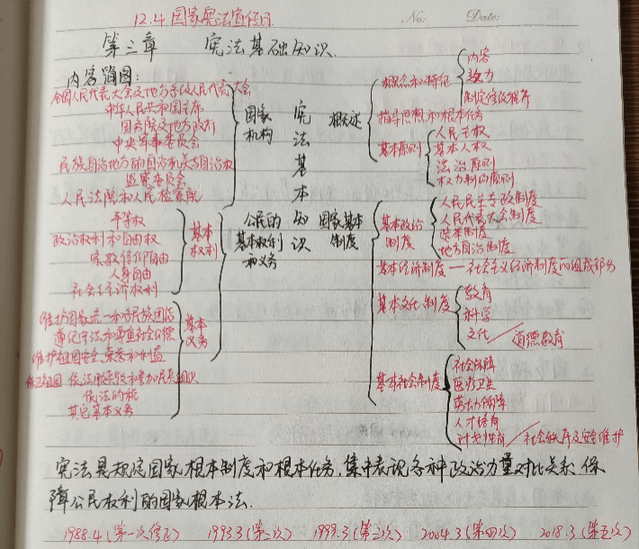 12.4 国家宪法宣传日
No: Date:
第三章 宪法基础知识
内容简图:
全国人民代表大会及地方各级人民代表大会
中华人民共和国主席
国务院及地方政府
中央军事委员会
民族自治地方的自治机关与自治权
监察委员会
人民法院和人民检察院
国家
机构
平等权
政治权利和自由权
宗教信仰自由
人身自由
社会经济权利
基本
权利
维护国家统一和各民族团结
遵纪守法和尊重社会公德
维护祖国安全、荣誉和利益
保卫祖国 依法服兵役和参加民兵组织
依法纳税
其它基本义务
基本
义务
公民的
基本权利
和义务
宪法基本知识
概述
概念和特征
内容
效力
制定修改程序
指导思想和根本任务
基本原则
人民主权
基本人权
法治原则
权力制约原则
国家基本
制度
基本政治
制度
人民民主专政制度
人民代表大会制度
选举制度
地方自治制度
基本经济制度——社会主义经济制度的组成部分
基本文化制度
教育
科学
文化
道德教育
基本社会制度
社会保障
医疗卫生
劳动保障
人才培育
计划生育
社会秩序及安全维护
宪法是规定国家根本制度和根本任务,集中表现各种政治力量对比关系,保
障公民权利的国家根本法.
1988.4(第一次修正) 1993.3(第二次) 1999.3(第三次) 2004.3(第四次) 2018.3(第五次)